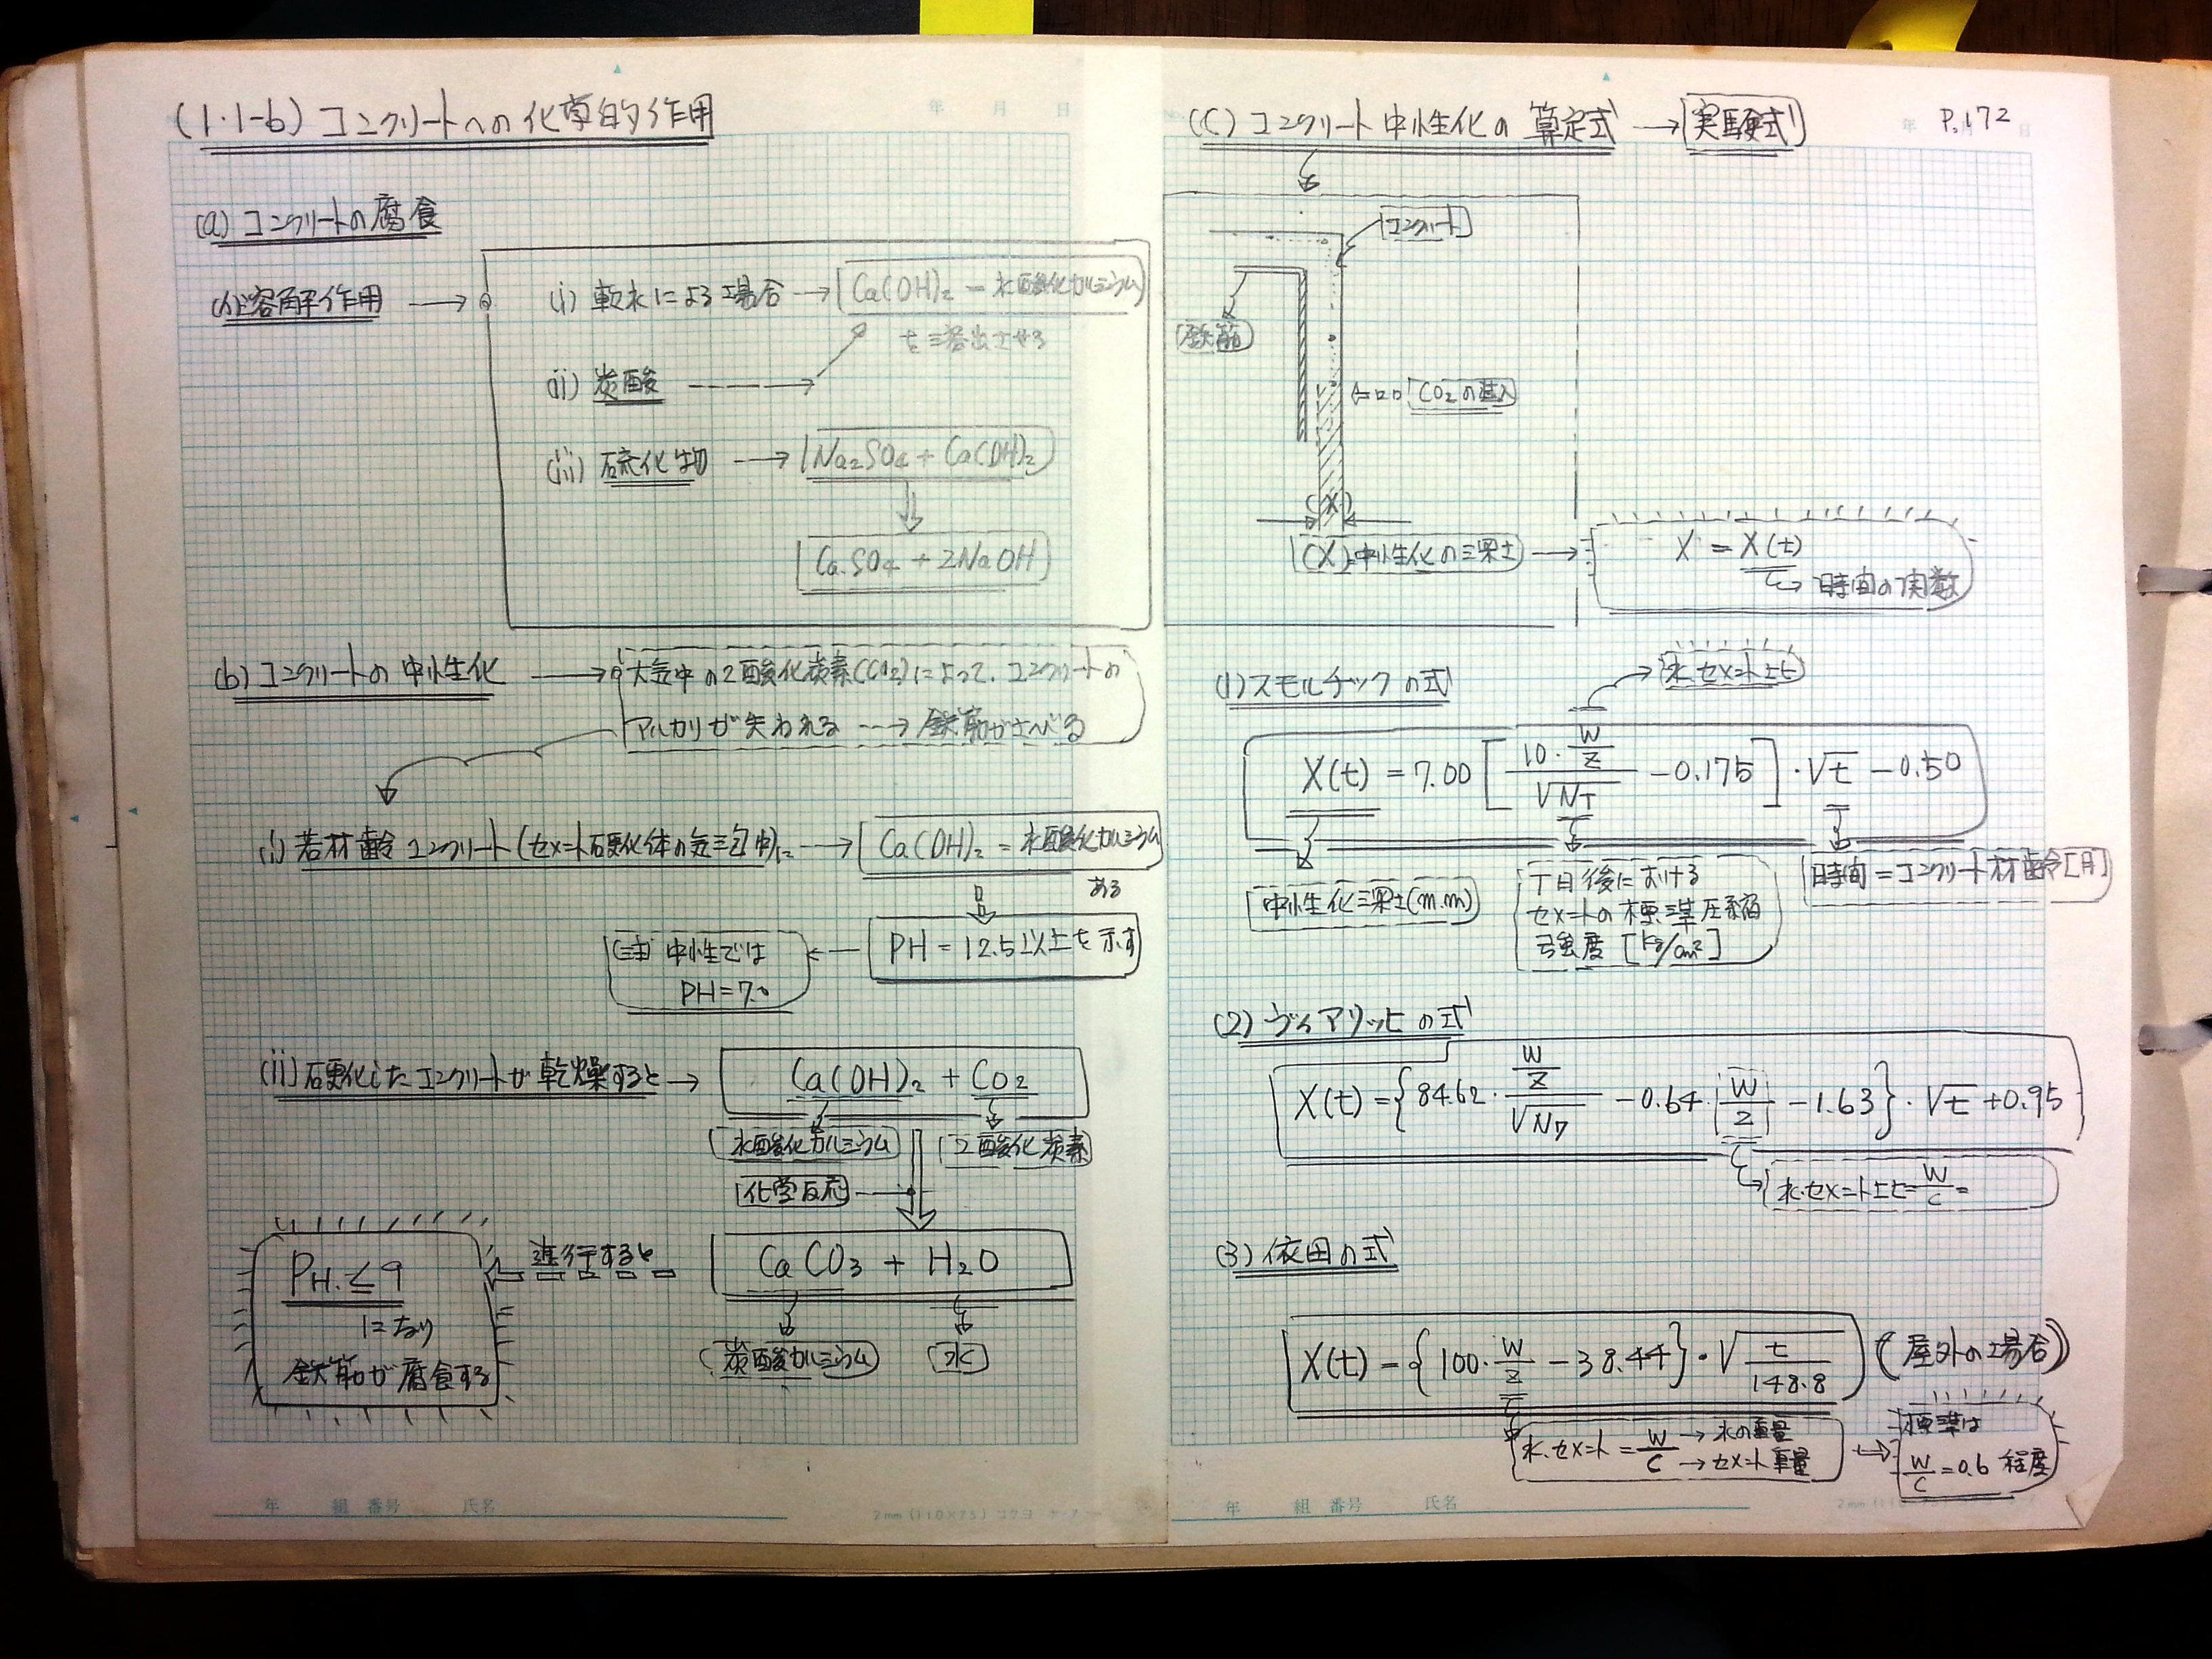 (1・1-b) コンクリートへの化学的作用
(a) コンクリートの腐食
(1) 溶解作用 →
(i) 軟水による場合 → Ca(OH)₂ − 水酸化カルシウム
を溶出させる
(ii) 炭酸
(iii) 硫化物 → Na₂SO₄ + Ca(OH)₂
CaSO₄ + 2NaOH
(b) コンクリートの中性化 → 大気中の2酸化炭素(CO₂)によって、コンクリートの
アルカリが失われる → 鉄筋がさびる
(i) 若材齢コンクリート(セメント硬化体の気泡中)に → Ca(OH)₂ = 水酸化カルシウム
ある
PH = 12.5以上を示す
(注) 中性では
PH=7.0
(ii) 硬化したコンクリートが乾燥すると → Ca(OH)₂ + CO₂
水酸化カルシウム 2酸化炭素
化学反応
CaCO₃ + H₂O
炭酸カルシウム 水
進行すると
PH.≤9
になり
鉄筋が腐食する
年 組 番号 氏名
年 月 日
(C) コンクリート中性化の算定式 → 実験式
P.172
コンクリート
鉄筋
CO₂の進入
(X)
(X)中性化の深さ → X = X(t)
時間の関数
(1) スモルチックの式
水.セメント比
X(t) = 7.00 [ 10・W/Z / √N_T − 0.175 ]・√t − 0.50
中性化深さ(m.m)
T日後における
セメントの標準圧縮
強度 [kg/cm²]
時間 = コンクリート材齢[月]
(2) ヴィアリッヒの式
X(t) = {84.62・W/Z / √N₇ − 0.64・W/Z − 1.63}・√t + 0.95
水.セメント比 = W/C =
(3) 依田の式
X(t) = {100・W/Z − 38.44}・√t/148.8 (屋外の場合)
水.セメント = W/C → 水の重量
→ セメント重量
標準は
W/C = 0.6 程度
年 組 番号 氏名